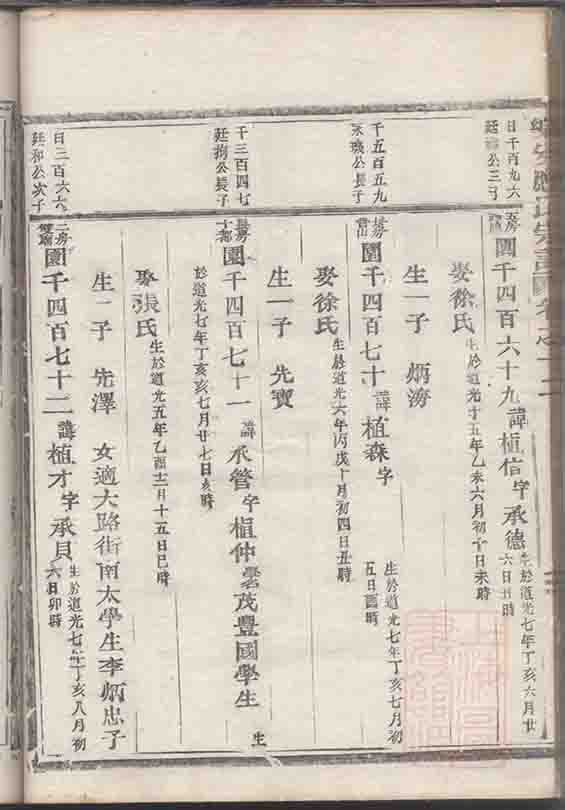 日千百九六
公三子
圓千四百六十九 諱植信 字承德 生於道光七年丁亥六月廿
六日丑時
娶徐氏 生於道光十五年乙亥六月初十日未時
生一子 炳
千五百五九
公長子
圓千四百七十 諱植森 字 生於道光七年丁亥七月初
五日酉時
娶徐氏 生於道光六年丙戌十月初四日丑時
生一子 先寶
千三百四七
廷
公長子
長房
十都
圓千四百七十一 諱承管 字植仲 號茂豐國學生 生
於道光七年丁亥七月廿七日亥時
娶張氏 生於道光五年乙酉十二月十五日巳時
生一子 先澤 女適大路街南太學生李炳忠子
日二百六六
廷和公次子
二房
圓千四百七十二 諱植才 字承貝 生於道光七年丁亥八月初
六日卯時